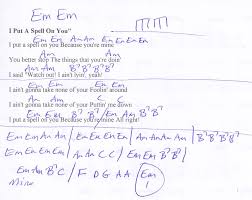 Em Em
I Put A Spell On You"
Em Em Am Am Em Em Em Em
I put a spell on you Because you're mine
Am Am
You better stop The things that you're doin'
Am Am B7 B7 B7 B7
I said "Watch out! I ain't lyin', yeah!
Am Am Em Em
I ain't gonna take none of your Foolin' around
Am Am C C
I ain't gonna take none of your Puttin' me down
Em B7 B7 Em Am B7 B7
I put a spell on you Because you're mine All right!
Em Am Em Am | Em Em Em Em | Am Am Am Am | B7 B7 B7 B7
Em Em Em Em | Am Am C C | Em Em B7 B7 |
Em Am B7 C / F D G A A Em
Minor 1